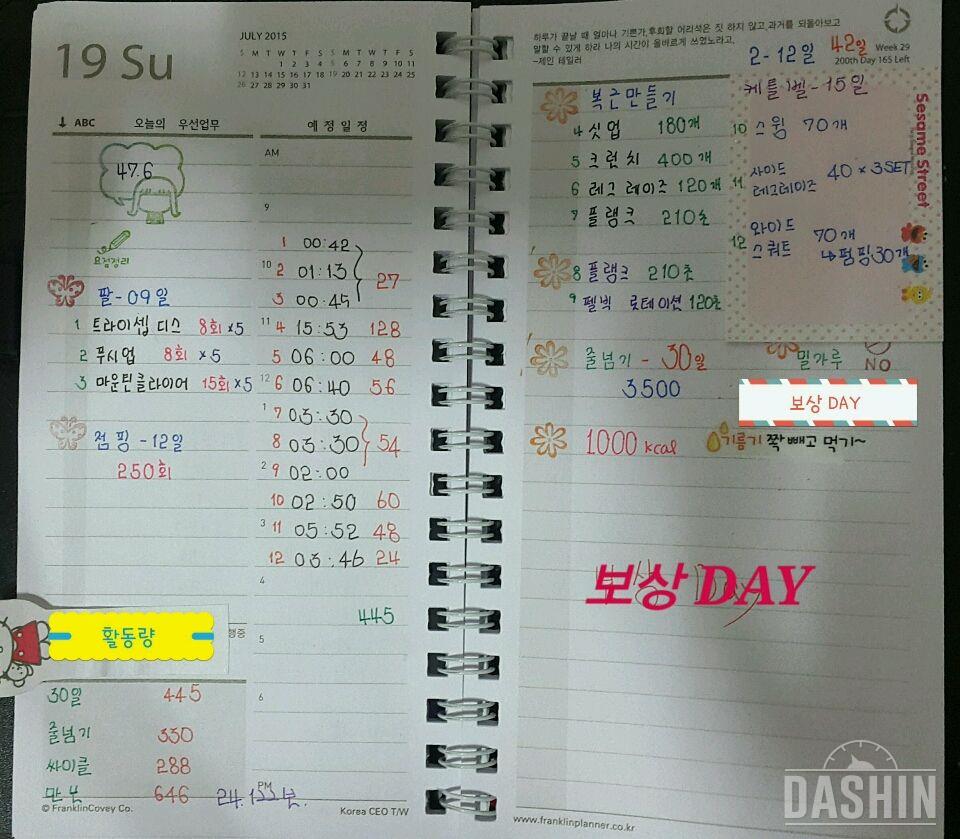 19 Su
JULY 2015
S M T W T F S S M T W T F S
1 2 3 4 5 6 7 8 9 10 11
12 13 14 15 16 17 18 19 20 21 22 23 24 25
26 27 28 29 30 31
↓ ABC 오늘의 우선업무
예정일정
47.6
요점정리
팔-09일
1 트라이셉 디스 8회 x5
2 푸시업 8회 x5
3 마운틴클라이머 15회 x5
점핑 - 12일
250회
활동량
행중
30일 445
줄넘기 330
싸이클 288
만보 646
© FranklinCovey Co.
AM
9
1 00:42
10 2 01:13 27
3 00:45
11 4 15:53 128
5 06:00 48
12 6 06:40 56
1 7 03:30
8 03:30 54
2 9 02:00
10 02:50 60
3 11 05:52 48
12 03:46 24
4
445
5
6
PM
Korea CEO T/W
하루가 끝날 때 얼마나 기쁜가,후회할 어리석은 짓 하지 않고,과거를 되돌아보고
말할 수 있게 하라 나의 시간이 올바르게 쓰였노라고,
-제인 테일러
2-12일 42일
Week 29
200th Day 165 Left
복근만들기
4 싯업 180개
5 크런치 400개
6 레그레이즈 120개
7 플랭크 210초
8 플랭크 210초
9 펠빅 롯테이션 120초
케틀벨-15일
10 스윙 70개
11 사이드
레그레이즈 40 x 3SET
12 와이드
스쿼트 70개
↳펌핑30개
Sesame Street
줄넘기 - 30일
3500
밀가루 NO
보상 DAY
1000 kcal
기름기 쫙 빼고 먹기~
보상 DAY
www.franklinplanner.co.kr
DASHIN